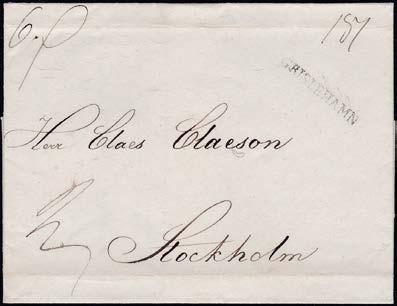 187
GRISLEHAMN
Herr Claes Claeson
Stockholm